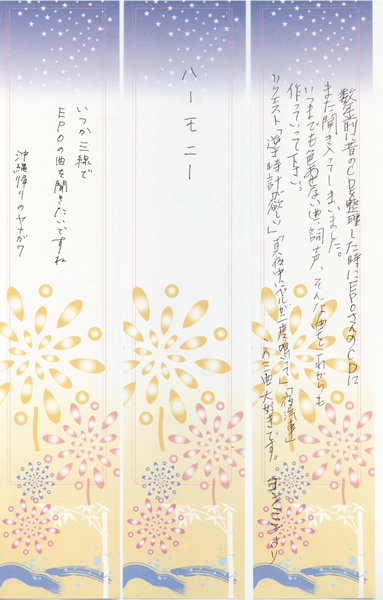 数年前に昔のCDを整理した時にEPOさんのCDに
また聞き入ってしまいました。
いつまでも色あせない曲、詞、声、そんな曲をこれからも
作っていって下さい。
リクエスト「逆さ時計が欲しい」「真夜中にベルが二度鳴って」「夜汽車」
この三曲大好きです。
ハーモニー
いつか三線で
EPOの曲を聞きたいですね
沖縄帰りのヤナガワ